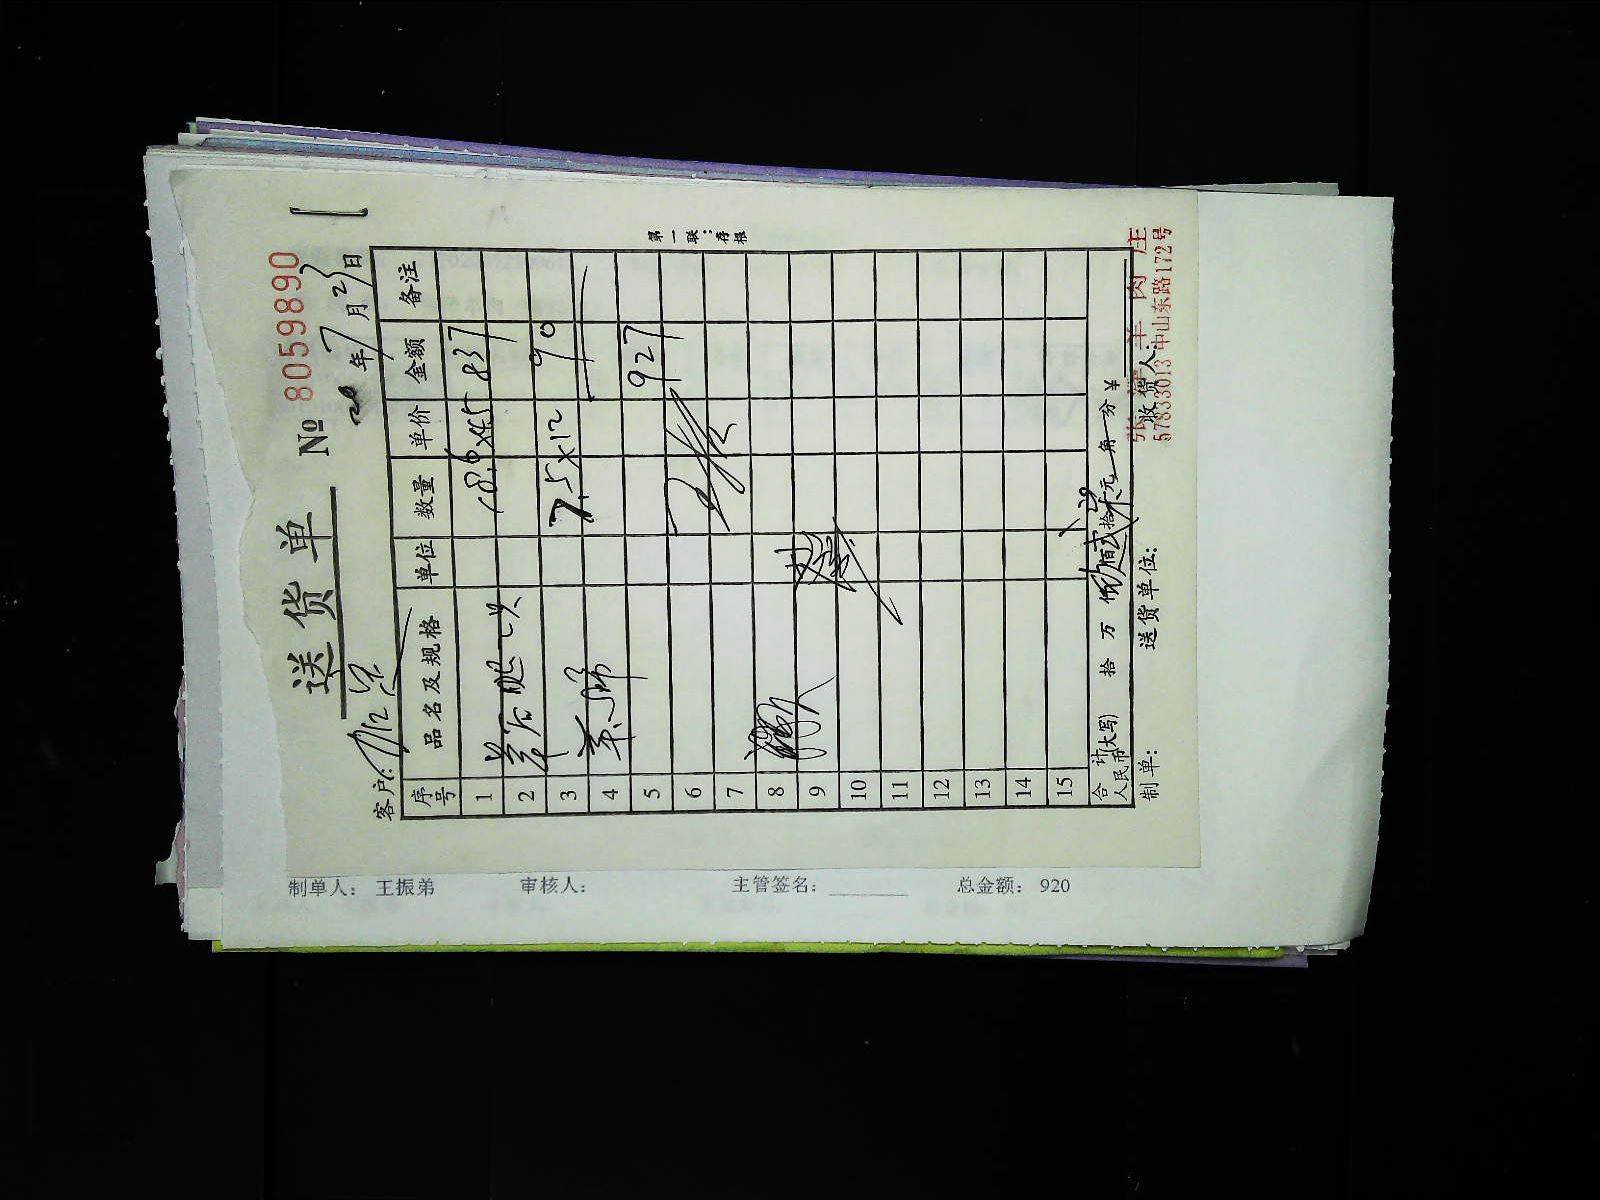 送货单 № 8059890
20年7月23日
客户:
序号 品名及规格 单位 数量 单价 金额 备注
1 18.6×45 837
2
3 7.5×12 90
4
5 927
6
7
8
9
10
11
12
13
14
15
合计人民币(大写) 拾 万 仟 佰 拾 元 角 分 ¥
制单: 送货单位: 收货人:
羊肉庄
57833013 中山东路172号
第一联:存根
制单人: 王振弟 审核人: 主管签名: 总金额: 920